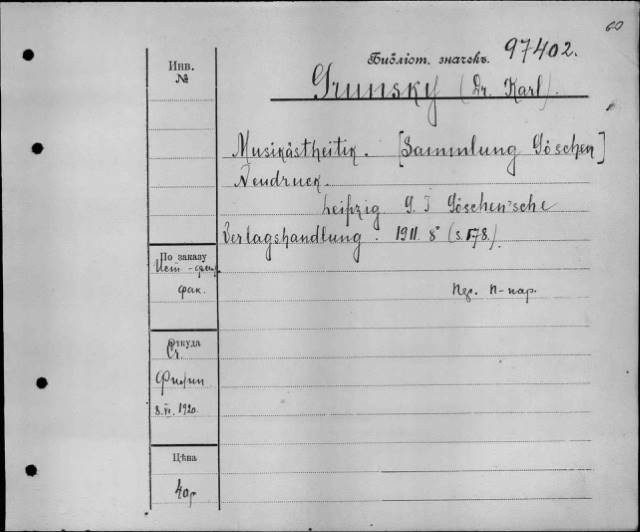 60
Библіот. значекъ. 97402.
Инв.
№
Grunsky (Dr. Karl).
Musikästheitik. [Sammlung Göschen]
Neudruck.
Leipzig G. J Göschen'sche
Verlagshandlung. 1911. 8° (S. 178.)
По заказу
Ист.-фил.
фак.
п-пар.
Откуда
Ст.
Фирин
8.VI.1920.
Цѣна
40р